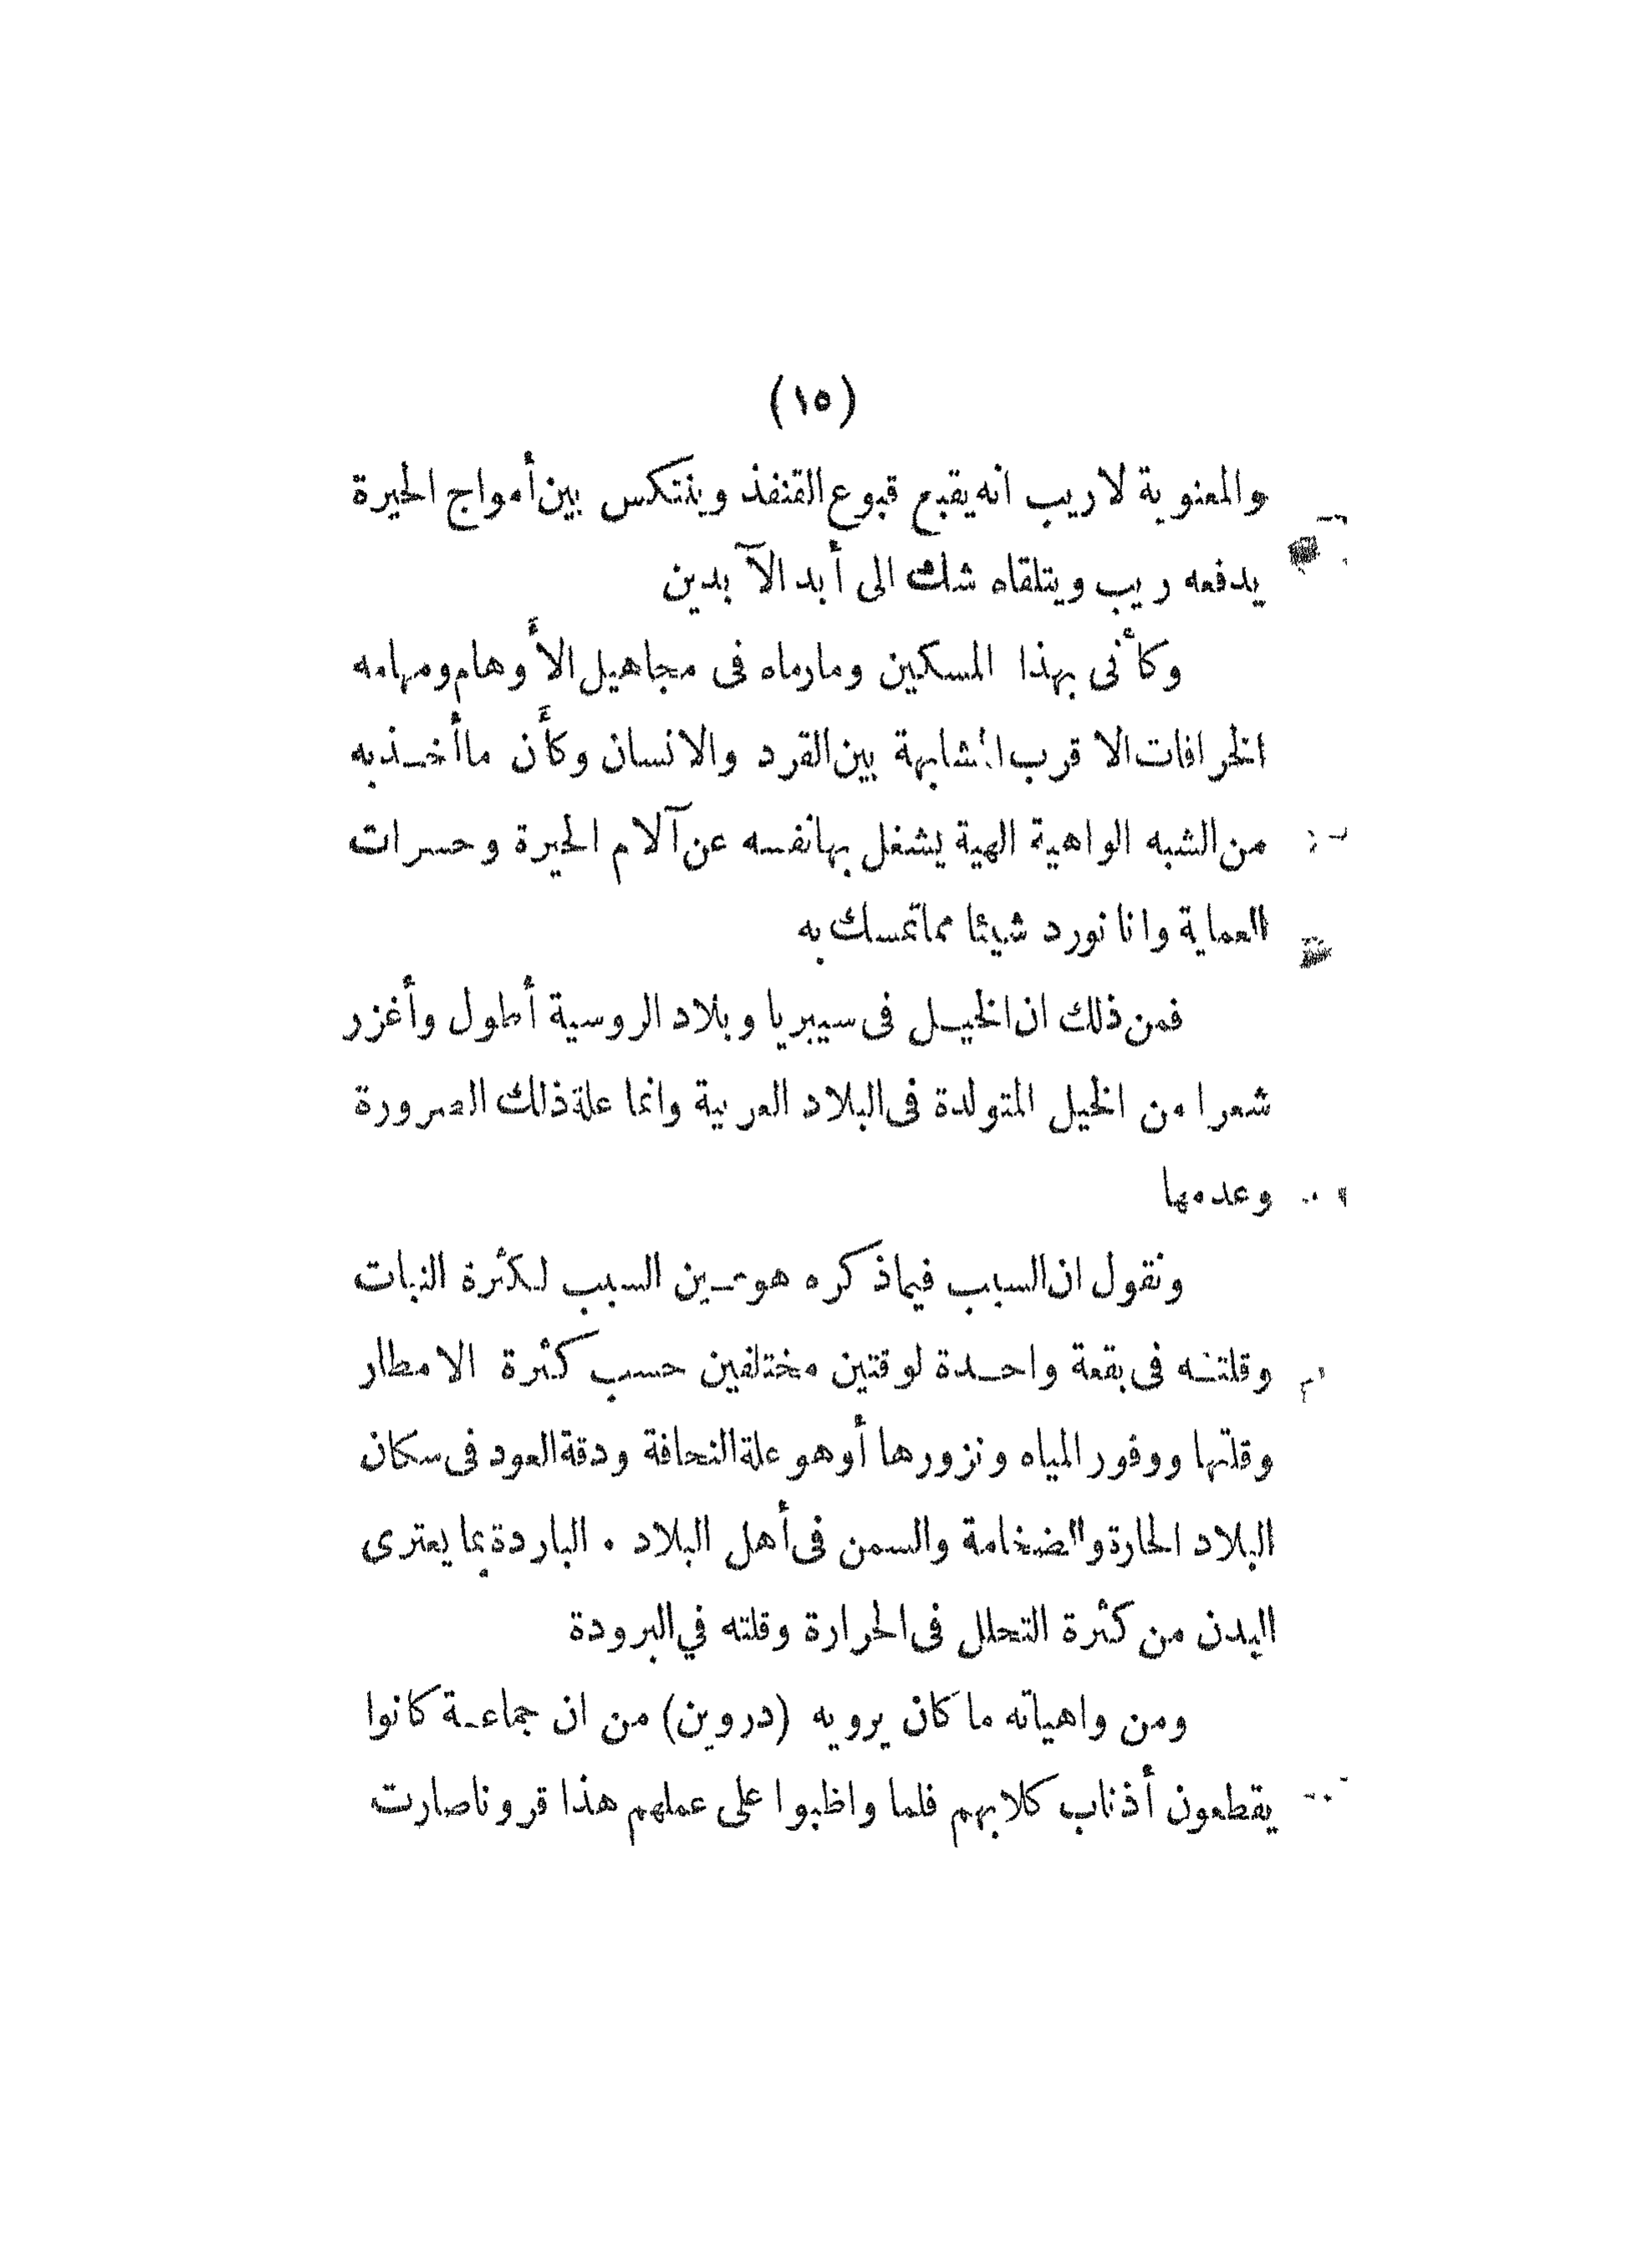 (١٥)
والمعنوية لاريب انه يقبع قبوع القنفذ وينتكس بين أمواج الحيرة
يدفعه ريب ويتلقاه شك الى أبد الآبدين
وكأنى بهذا المسكين ومارماه فى مجاهيل الأوهام ومهامه
الخرافات الا قرب المشابهة بين القرد والانسان وكأن ماأخذ به
من الشبه الواهية الهية يشغل بها نفسه عن آلام الحيرة وحسرات
العماية وانا نورد شيئا مما تمسك به
فمن ذلك ان الخيل فى سيبريا وبلاد الروسية أطول وأغزر
شعرا من الخيل المتولدة فى البلاد العربية وانما علة ذلك الضرورة
وعدمها
ونقول ان السبب فيما ذكره هو عين السبب لكثرة النبات
وقلته فى بقعة واحدة لوقتين مختلفين حسب كثرة الامطار
وقلتها ووفور المياه ونزورها أوهو علة النحافة ودقة العود فى سكان
البلاد الحارة والضخامة والسمن فى أهل البلاد . الباردة بما يعترى
البدن من كثرة التحلل فى الحرارة وقلته في البرودة
ومن واهياته ما كان يرويه (دروين) من ان جماعة كانوا
يقطعون أذناب كلابهم فلما واظبوا على عملهم هذا قرونا صارت